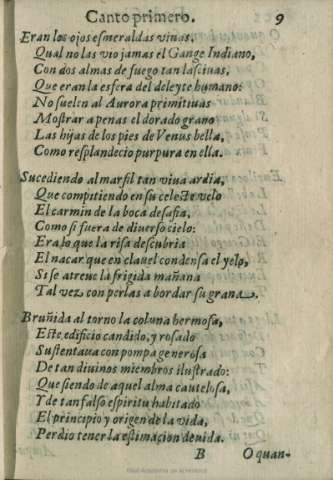 Canto primero. 9
Eran los ojos esmeraldas viuas,
Qual no las vio jamas el Gange Indiano,
Con dos almas de fuego tan lasciuas,
Que eran la esfera del deleyte humano:
No suelen al Aurora primitiuas
Mostrar apenas el dorado grano
Las hijas de los pies de Venus bella,
Como resplandecio purpura en ella.
Sucediendo al marfil tan viua ardia,
Que compitiendo en su celeste velo
El carmin de la boca desafia,
Como si fuera de diuerso cielo:
Era lo que la risa descubria
El nacar que en clauel condensa el yelo,
Si se atreue la frigida mañana
Tal vez con perlas a bordar su grana.
Bruñida al torno la coluna hermosa,
Este edificio candido, y rosado
Sustentaua con pompa generosa
De tan diuinos miembros ilustrado:
Que siendo de aquel alma cautelosa,
Y de tan falso espiritu habitado
El principio y origen de la vida,
Perdio tener la estimacion deuida.
B O quan-